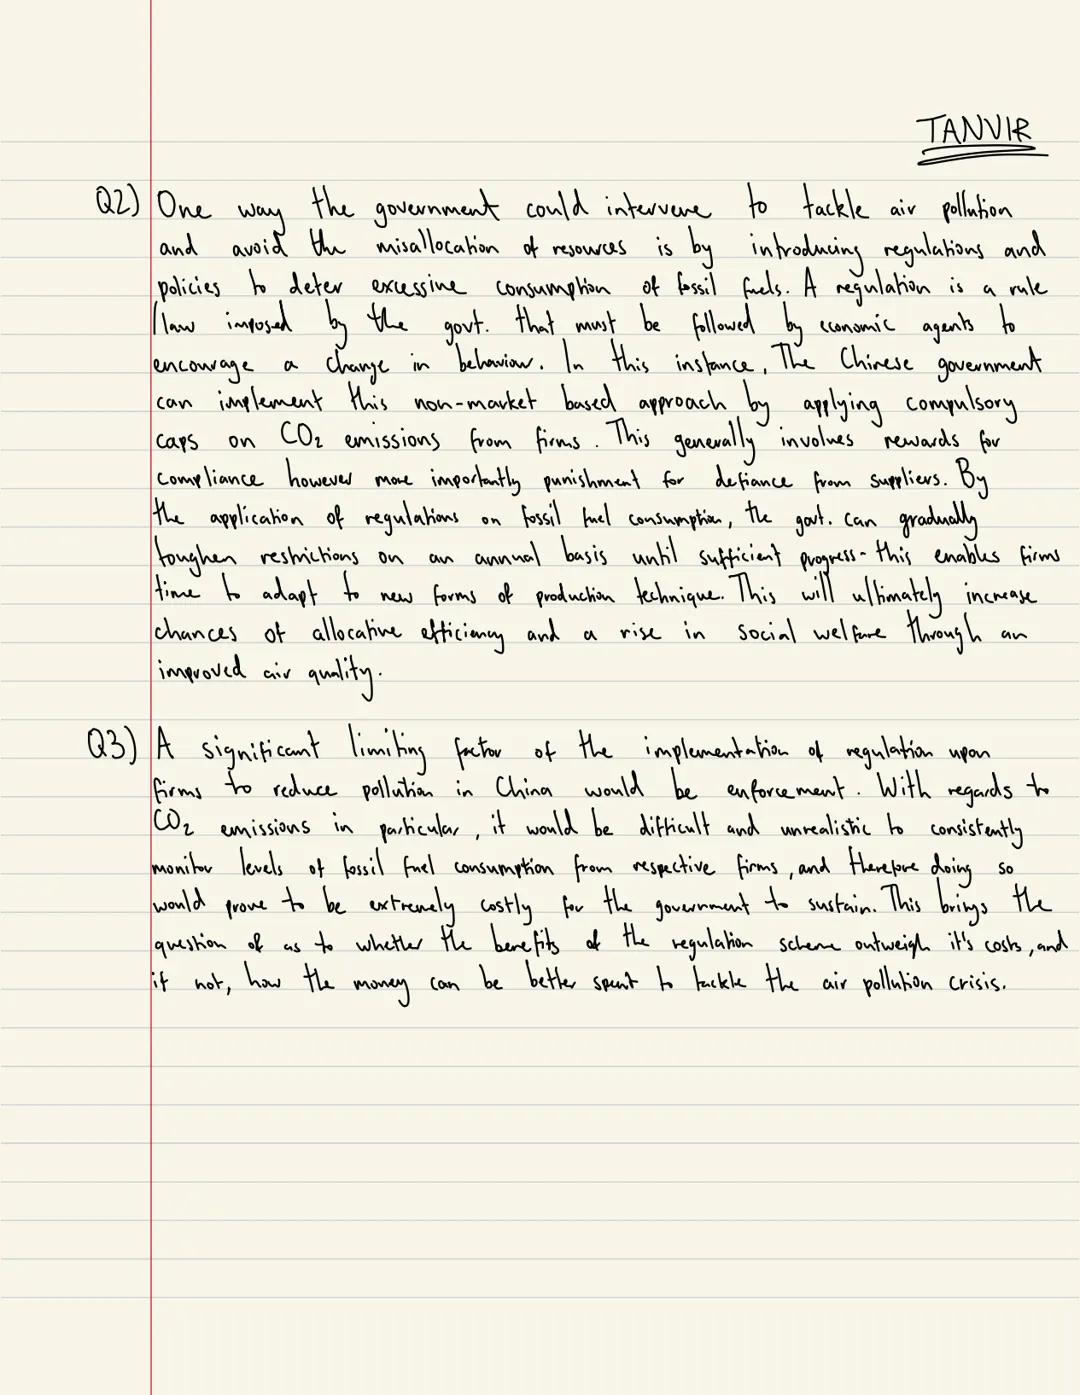 TANVIR
Q2) One way the government could intervene to tackle air pollution
and avoid the misallocation of resources is by introducing regulations and
policies to deter excessive consumption of fossil fuels. A regulation is a rule
/law imposed by the govt. that must be followed by economic agents to
encourage a change in behaviour. In this instance, The Chinese government
can implement this non-market based approach by applying compulsory
caps on CO2 emissions from firms. This generally involves rewards for
compliance however more importantly punishment for defiance from suppliers. By
the application of regulations on fossil fuel consumption, the govt. can gradually
toughen restrictions on an annual basis until sufficient progress - this enables firms
time to adapt to new forms of production technique. This will ultimately increase
chances of allocative efficiency and a rise in social welfare through an
improved air quality.
Q3) A significant limiting factor of the implementation of regulation upon
firms to reduce pollution in China would be enforcement. With regards to
CO2 emissions in particular, it would be difficult and unrealistic to consistently
monitor levels of fossil fuel consumption from respective firms, and therefore doing so
would prove to be extremely costly for the government to sustain. This brings the
question of as to whether the benefits of the regulation scheme outweigh it's costs, and
if not, how the money can be better spent to tackle the air pollution crisis.